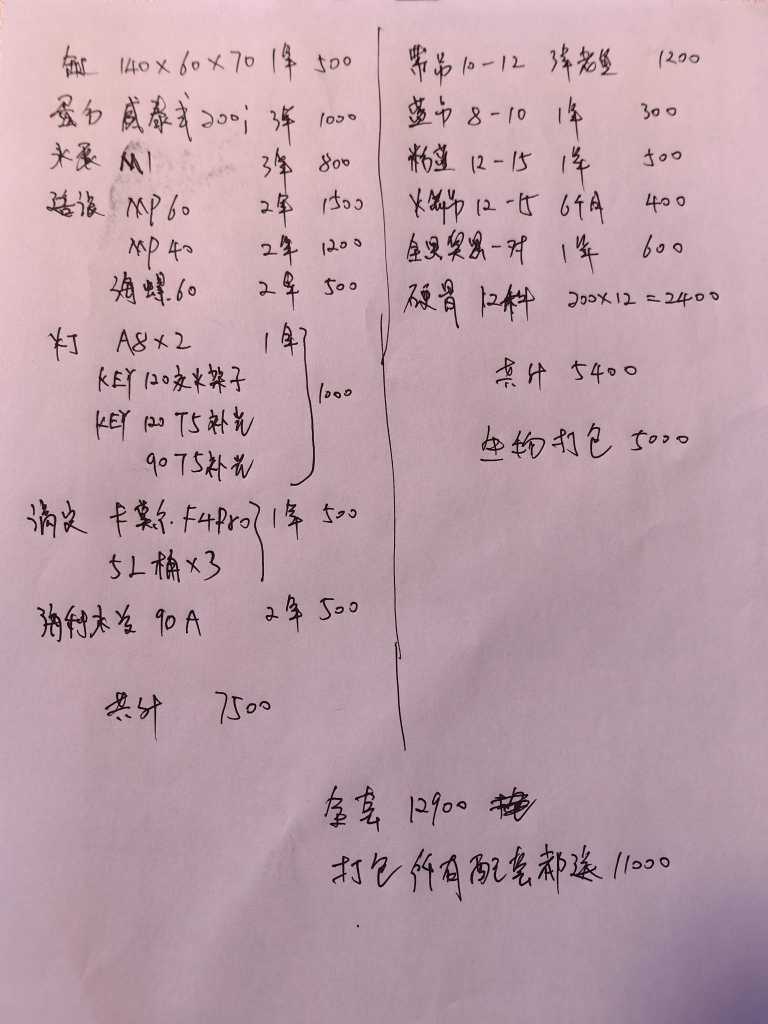 缸 140×60×70 1年 500
蛋分 威泰武 200i 3年 1000
水泵 M1 3年 800
造浪 MP60 2年 1500
MP40 2年 1200
海螺.60 2年 500
灯 A8×2 1年
KEY 120灰米架子
KEY 120 T5补光
90T5补光
1000
滴定 卡莫尔.F4Pro 1年 500
5L桶×3
海利水冷 90A 2年 500
共计 7500
紫吊 10-12 3年老鱼 1200
蓝吊 8-10 1年 300
粉蓝 12-15 1年 500
火箭吊 12-15 6个月 400
金眼 一对 1年 600
硬骨 12种 200×12=2400
共计 5400
生物打包 5000
全套 12900
打包所有配套都送 11000